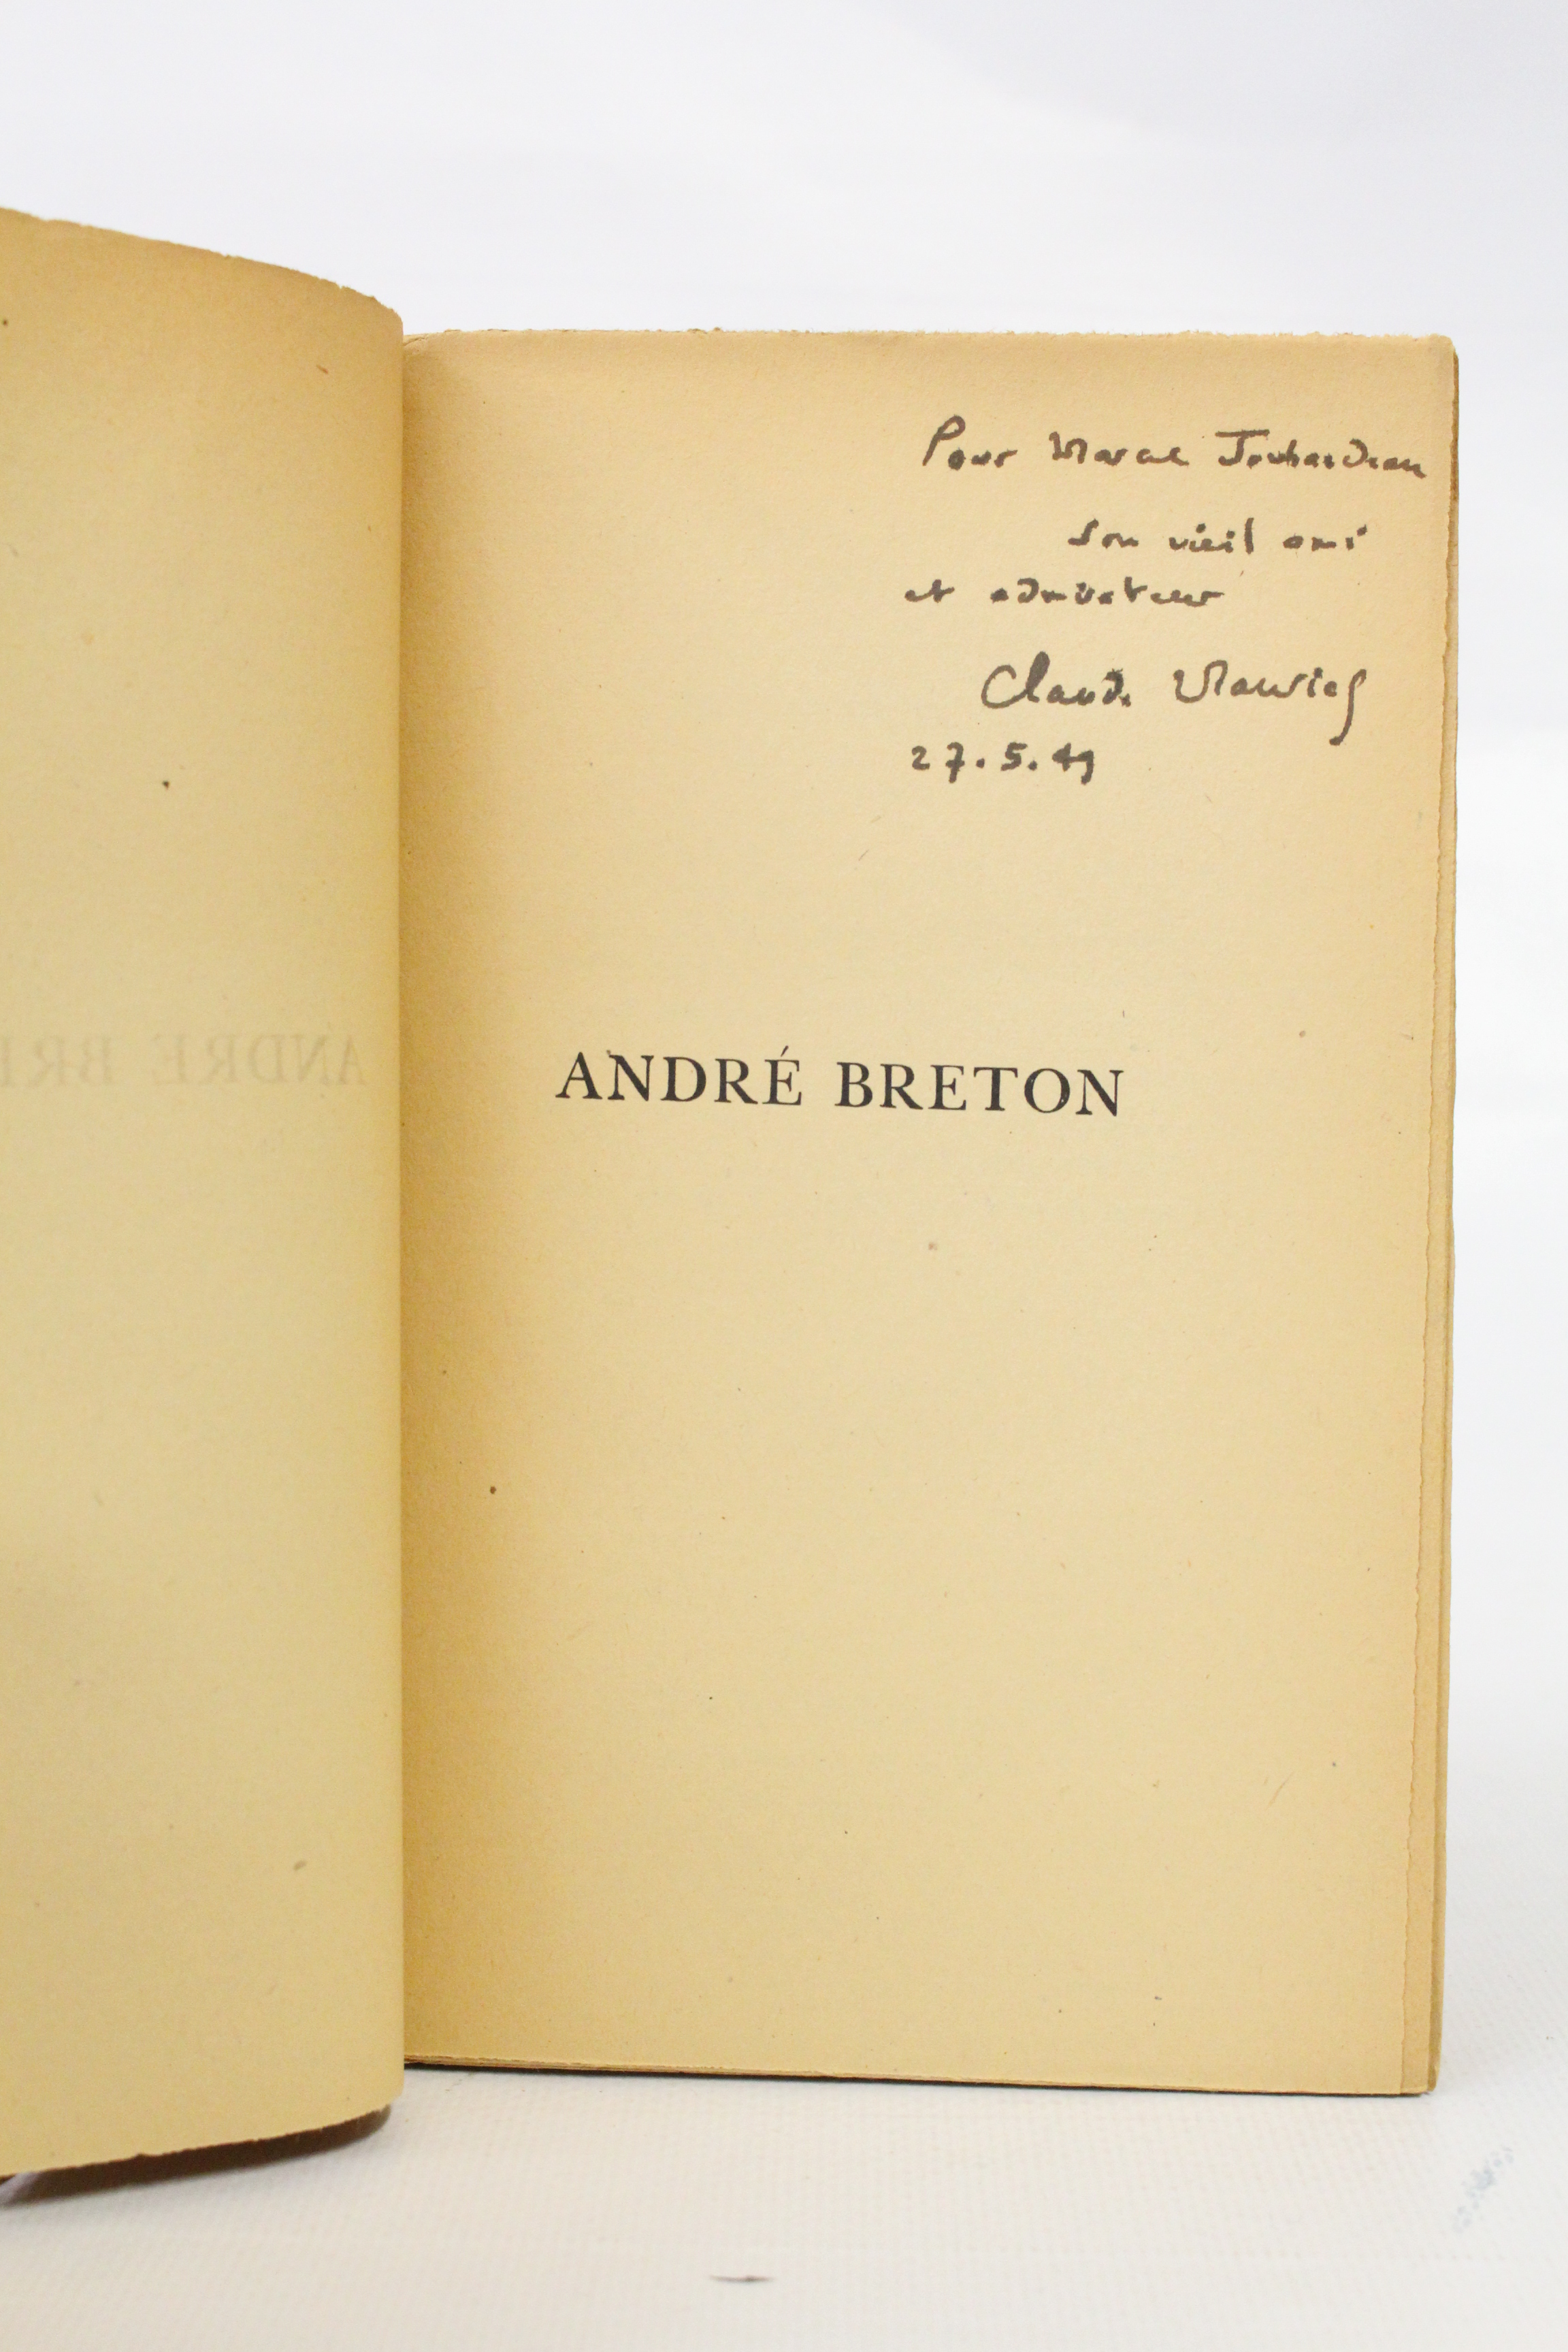 Pour Marcel Jouhandeau
son vieil ami
et admirateur
Claude Mauriac
27.5.49
ANDRÉ BRETON
ANDRÉ BRE